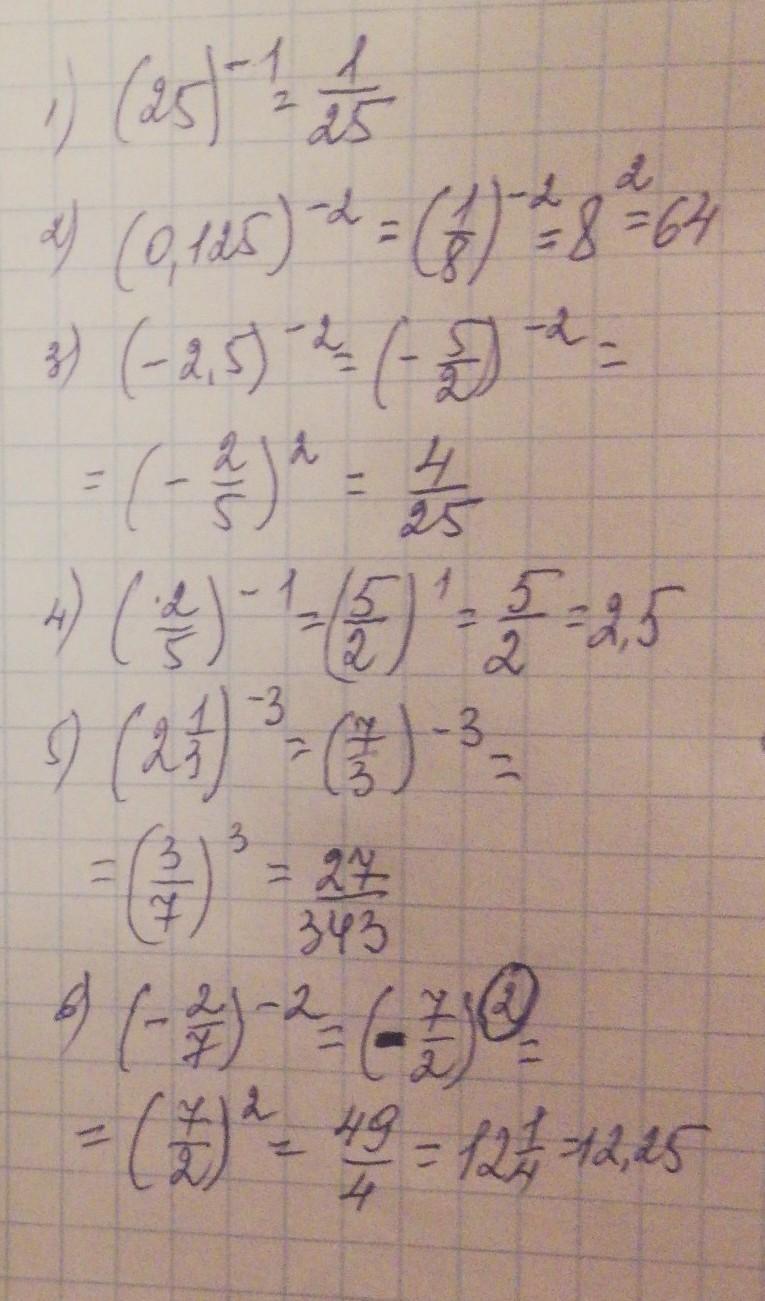 1) (25)^-1 = 1/25
2) (0,125)^-2 = (1/8)^-2 = 8^2 = 64
3) (-2,5)^-2 = (-5/2)^-2 =
= (-2/5)^2 = 4/25
4) (2/5)^-1 = (5/2)^1 = 5/2 = 2,5
5) (2 1/3)^-3 = (7/3)^-3 =
= (3/7)^3 = 27/343
6) (-2/7)^-2 = (-7/2)^2 =
= (7/2)^2 = 49/4 = 12 1/4 = 12,25